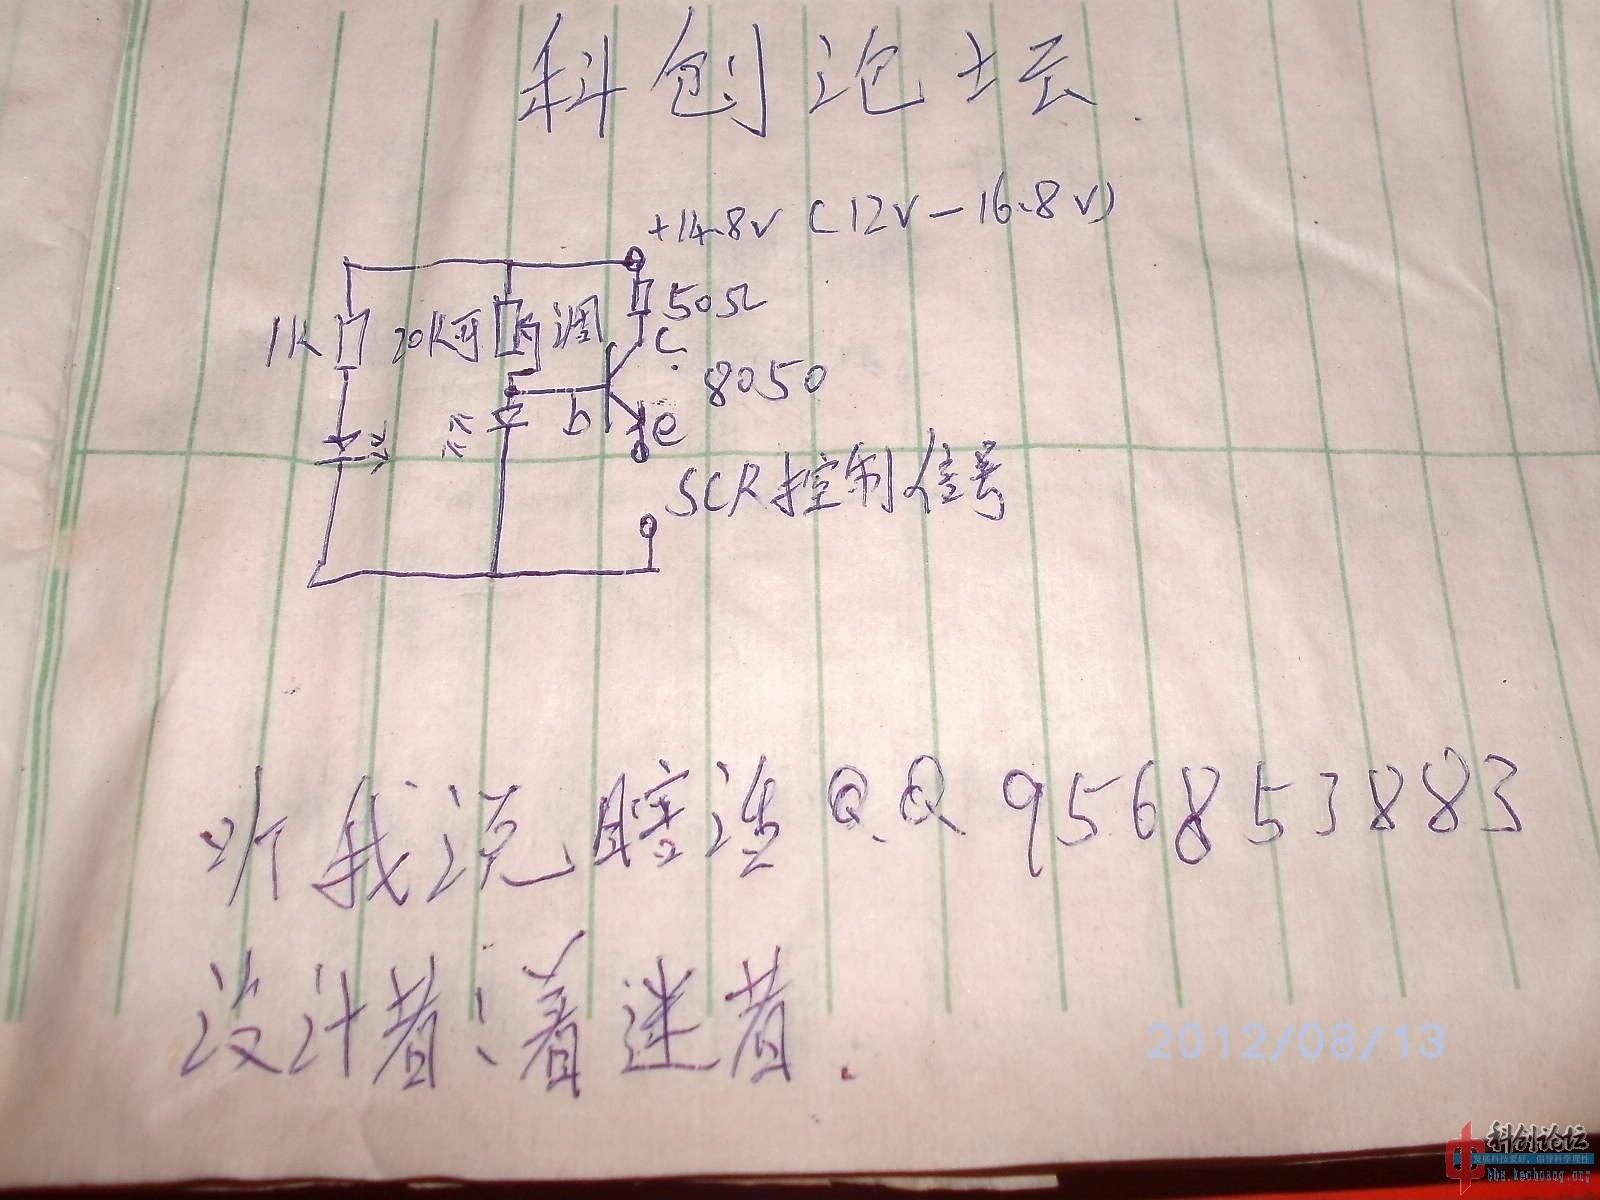 科创论坛
+14.8V (12V-16.8V)
50Ω
1K 20K可调
c
8050
b e
SCR控制信号
听我说瞎造QQ956853883
设计者:着迷者.
2012/08/13
科创论坛
bbs.kechuang.org